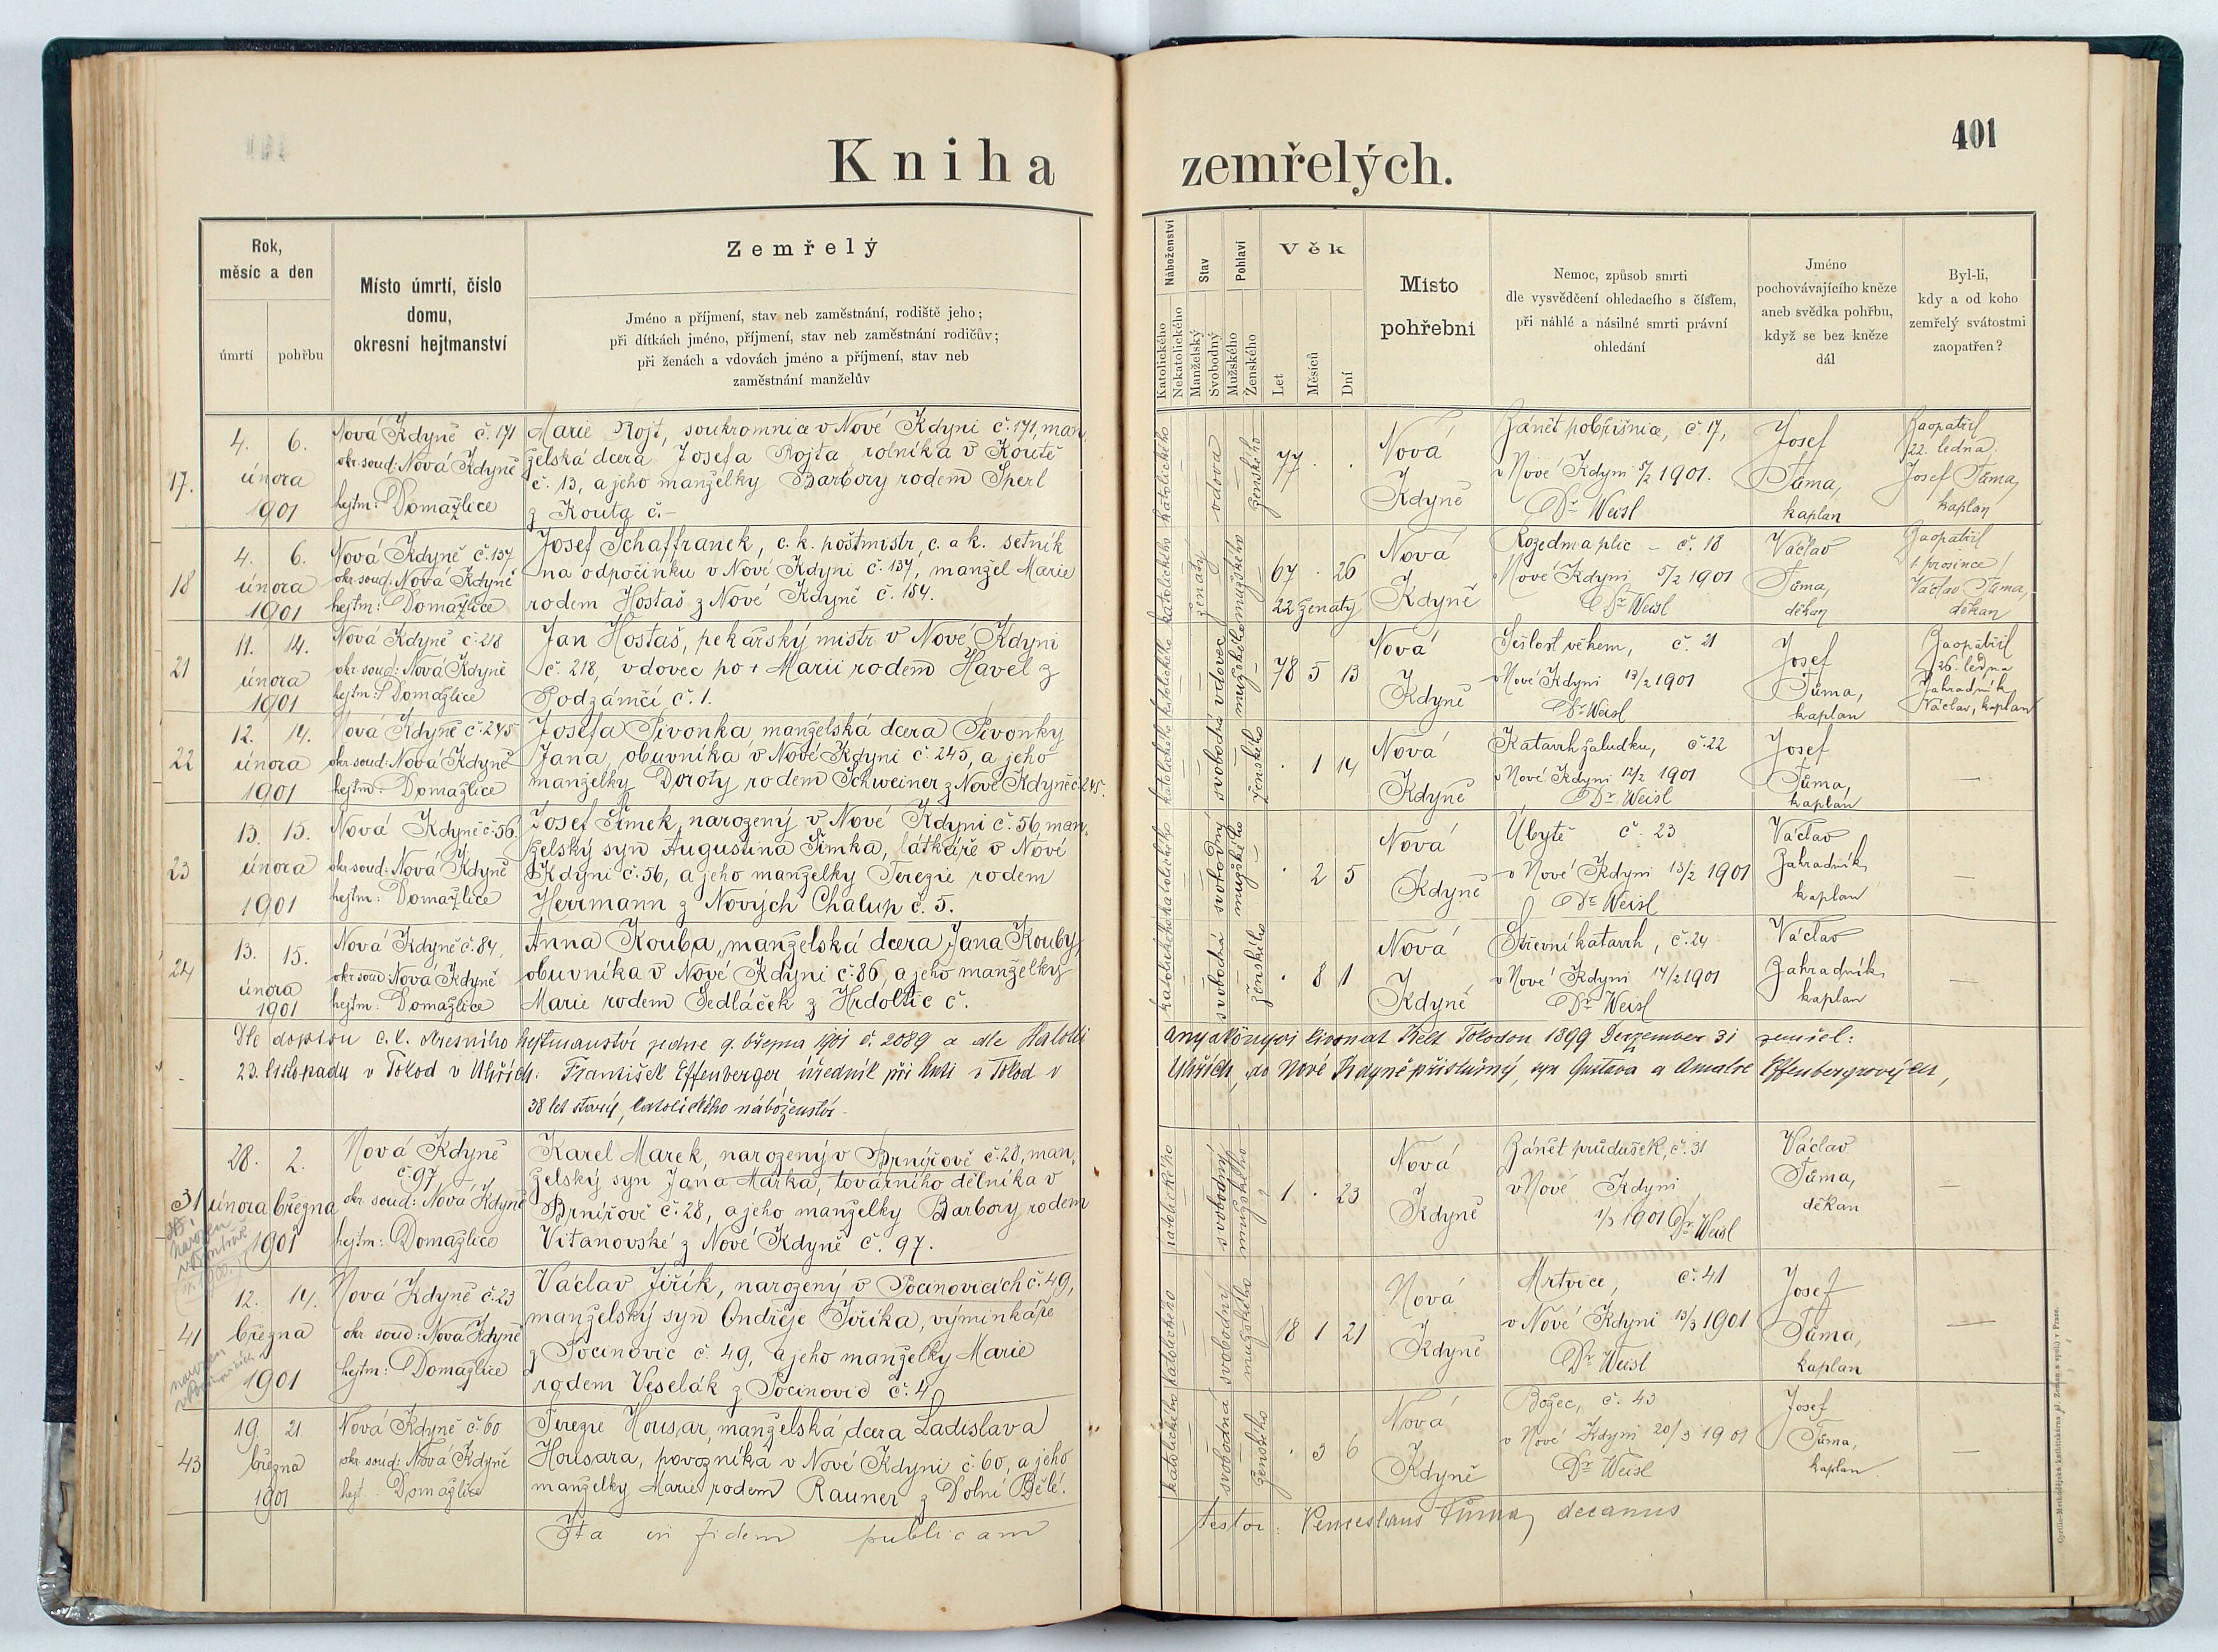 401
Kniha zemřelých.
Rok,
měsíc a den
úmrtí
pohřbu
Místo úmrtí, číslo
domu,
okresní hejtmanství
Zemřelý
Jméno a příjmení, stav neb zaměstnání, rodiště jeho;
při dítkách jméno, příjmení, stav neb zaměstnání rodičův;
při ženách a vdovách jméno a příjmení, stav neb
zaměstnání manželův
Náboženství
Katolického
Nekatolického
Stav
Manželský
Svobodný
Pohlaví
Mužského
Ženského
Věk
Let
Měsíců
Dní
Místo
pohřební
Nemoc, způsob smrti
dle vysvědčení ohledacího s číslem,
při náhlé a násilné smrti právní
ohledání
Jméno
pochovávajícího kněze
aneb svědka pohřbu,
když se bez kněze
dál
Byl-li,
kdy a od koho
zemřelý svátostmi
zaopatřen?
17.
4. 6.
února
1901
Nová Kdyně č. 171
okr. soud: Nová Kdyně
hejtm: Domažlice
Marie Rojt, soukromnice v Nové Kdyni č. 171, man,
želská dcera Josefa Rojta rolníka v Koutě
č. 13, a jeho manželky Barbory rodem Šperl
z Kouta č. –
katolického
vdova
ženského
77 . .
Nová
Kdyně
Zánět pobřišnice, č. 17,
v Nové Kdyni 5/2 1901.
Dr Weisl
Josef
Tůma,
kaplan
Zaopatřil
22. ledna
Josef Tůma,
kaplan
18
4. 6.
února
1901
Nová Kdyně č. 137
okr. soud: Nová Kdyně
hejtm: Domažlice
Josef Schaffranek, c. k. poštmistr, c. a k. setník
na odpočinku v Nové Kdyni č. 137, manžel Marie
rodem Hostaš z Nové Kdyně č. 154.
katolického
ženatý
mužského
67 . 26
22 ženatý
Nová
Kdyně
Rozedma plic – č. 18
v Nové Kdyni 5/2 1901
Dr Weisl
Václav
Tůma,
děkan
Zaopatřil
1. prosince
Václav Tůma,
děkan
21
11. 14.
února
1901
Nová Kdyně č. 218
okr. soud: Nová Kdyně
hejtm: Domažlice
Jan Hostaš, pekařský mistr v Nové Kdyni
č. 218, vdovec po + Marii rodem Havel z
Podzámčí č. 1.
katolického
vdovec
mužského
78 5 13
Nová
Kdyně
Sešlost věkem, č. 21
v Nové Kdyni 13/2 1901
Dr Weisl
Josef
Tůma,
kaplan
Zaopatřil
26. ledna
Zahradník
Václav, kaplan
22
12. 14.
února
1901
Nová Kdyně č. 245
okr. soud: Nová Kdyně
hejtm: Domažlice
Josefa Pivonka, manželská dcera Pivonky
Jana, obuvníka v Nové Kdyni č. 245, a jeho
manželky Doroty rodem Schweiner z Nové Kdyně č. 245.
katolického
svobodná
ženského
. 1 14
Nová
Kdyně
Katarrh žaludku, č. 22
v Nové Kdyni 12/2 1901
Dr Weisl
Josef
Tůma,
kaplan
—
23
13. 15.
února
1901
Nová Kdyně č. 56.
okr. soud: Nová Kdyně
hejtm: Domažlice
Josef Šimek, narozený v Nové Kdyni č. 56, man,
želský syn Augustina Šimka, látkaře v Nové
Kdyni č. 56, a jeho manželky Terezie rodem
Herrmann z Nových Chalup č. 5.
katolického
svobodný
mužského
. 2 5
Nová
Kdyně
Úbytě č. 23
v Nové Kdyni 13/2 1901
Dr Weisl
Václav
Zahradník,
kaplan
—
24
13. 15.
února
1901
Nová Kdyně č. 84,
okr. soud: Nová Kdyně
hejtm: Domažlice
Anna Kouba, manželská dcera Jana Kouby,
obuvníka v Nové Kdyni č. 86, a jeho manželky
Marie rodem Sedláček z Hrdoltic č.
katolického
svobodná
ženského
. 8 1
Nová
Kdyně
Střevní katarrh, č. 24
v Nové Kdyni 14/2 1901
Dr Weisl
Václav
Zahradník,
kaplan
—
Dle dopisu c. k. okresního hejtmanství jedne 9. března 1901 č. 2089 a dle Halotti anyakönyvi kivonat Kelt Tokodon 1899 Deczember 31 zemřel:
23. listopadu v Tokod v Uhřích: František Effenberger, úředník při huti v Tokod v Uhřích, do Nové Kdyně příslušný, syn Gustava a Amalie Effenbergrových,
38 let starý, katolického náboženství.
31
28. 2.
února března
1901
narozen
Nová Kdyně
č. 97
okr. soud: Nová Kdyně
hejtm: Domažlice
Karel Marek, narozený v Brnířově č. 28, man,
želský syn Jana Marka, továrního dělníka v
Brnířově č. 28, a jeho manželky Barbory rodem
Vitanovské z Nové Kdyně č. 97.
katolického
svobodný
mužského
1 . 23
Nová
Kdyně
Zánět průdušek, č. 31
v Nové Kdyni
1/3 1901 Dr. Weisl
Václav
Tůma,
děkan
—
41
12. 14.
března
1901
narozen
v Pocinovicích
Nová Kdyně č. 23
okr. soud: Nová Kdyně
hejtm: Domažlice
Václav Jiřík, narozený v Pocinovicích č. 49,
manželský syn Ondřeje Jiříka, výminkáře
z Pocinovic č. 49, a jeho manželky Marie
rodem Veselák z Pocinovic č. 4
katolického
svobodný
mužského
18 1 21
Nová
Kdyně
Mrtvice, č. 41
v Nové Kdyni 13/3 1901
Dr Weisl
Josef
Tůma,
kaplan
—
43
19. 21.
března
1901
Nová Kdyně č. 60
okr. soud: Nová Kdyně
hejt. Domažlice
Terezie Housar, manželská dcera Ladislava
Housara, povozníka v Nové Kdyni č. 60, a jeho
manželky Marie rodem Rauner z Dolní Bělé.
katolického
svobodná
ženského
. 3 6
Nová
Kdyně
Božec, č. 43
v Nové Kdyni 20/3 1901
Dr Weisl
Josef
Tůma,
kaplan.
—
Ita in fidem publicam testor: Venceslaus Tůma, decanus